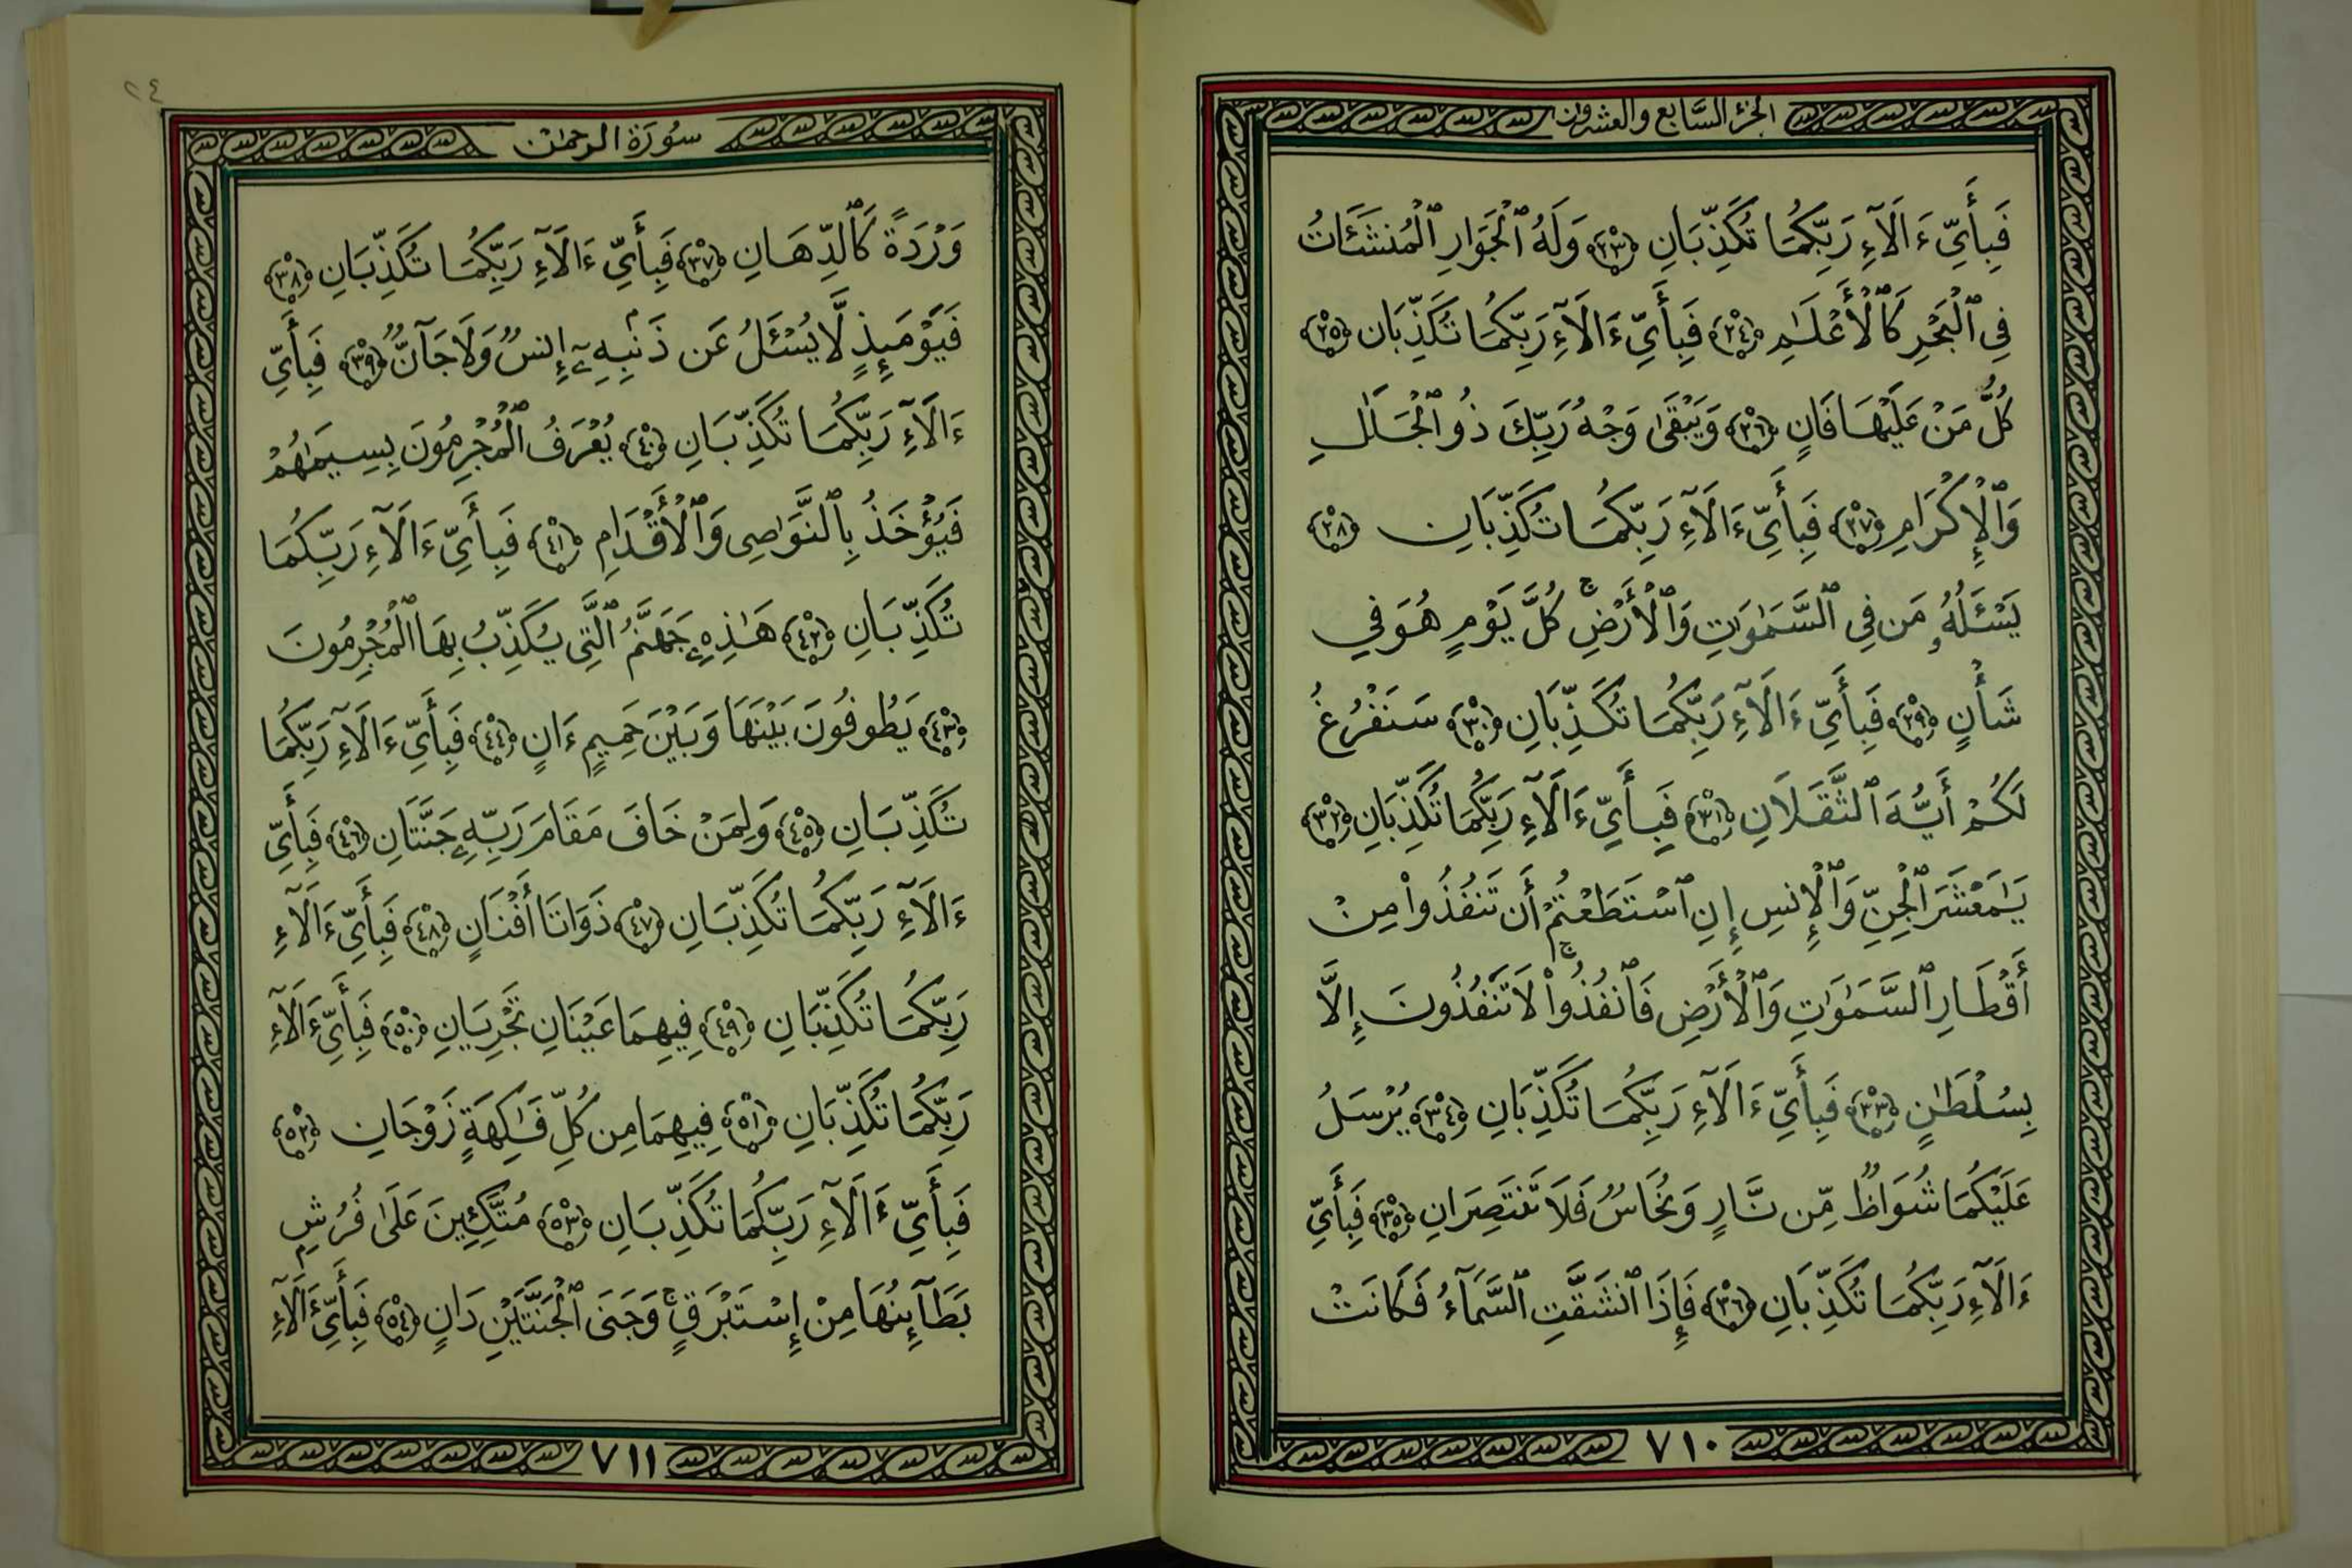 الجزء السابع والعشرون
فَبِأَيِّ ءَالَآءِ رَبِّكُمَا تُكَذِّبَانِ ﴿٢٣﴾ وَلَهُ ٱلْجَوَارِ ٱلْمُنشَـَٔاتُ
فِى ٱلْبَحْرِ كَٱلْأَعْلَـٰمِ ﴿٢٤﴾ فَبِأَيِّ ءَالَآءِ رَبِّكُمَا تُكَذِّبَانِ ﴿٢٥﴾
كُلُّ مَنْ عَلَيْهَا فَانٍ ﴿٢٦﴾ وَيَبْقَىٰ وَجْهُ رَبِّكَ ذُو ٱلْجَلَـٰلِ
وَٱلْإِكْرَامِ ﴿٢٧﴾ فَبِأَيِّ ءَالَآءِ رَبِّكُمَا تُكَذِّبَانِ ﴿٢٨﴾
يَسْـَٔلُهُۥ مَن فِى ٱلسَّمَـٰوَٰتِ وَٱلْأَرْضِ ۚ كُلَّ يَوْمٍ هُوَ فِي
شَأْنٍ ﴿٢٩﴾ فَبِأَيِّ ءَالَآءِ رَبِّكُمَا تُكَذِّبَانِ ﴿٣٠﴾ سَنَفْرُغُ
لَكُمْ أَيُّهَ ٱلثَّقَلَانِ ﴿٣١﴾ فَبِأَيِّ ءَالَآءِ رَبِّكُمَا تُكَذِّبَانِ ﴿٣٢﴾
يَـٰمَعْشَرَ ٱلْجِنِّ وَٱلْإِنسِ إِنِ ٱسْتَطَعْتُمْ أَن تَنفُذُوا۟ مِنْ
أَقْطَارِ ٱلسَّمَـٰوَٰتِ وَٱلْأَرْضِ فَٱنفُذُوا۟ ۚ لَا تَنفُذُونَ إِلَّا
بِسُلْطَـٰنٍ ﴿٣٣﴾ فَبِأَيِّ ءَالَآءِ رَبِّكُمَا تُكَذِّبَانِ ﴿٣٤﴾ يُرْسَلُ
عَلَيْكُمَا شُوَاظٌ مِّن نَّارٍ وَنُحَاسٌ فَلَا تَنتَصِرَانِ ﴿٣٥﴾ فَبِأَيِّ
ءَالَآءِ رَبِّكُمَا تُكَذِّبَانِ ﴿٣٦﴾ فَإِذَا ٱنشَقَّتِ ٱلسَّمَآءُ فَكَانَتْ
٧١٠
٢٤
سُورَة الرحمٰن
وَرْدَةً كَٱلدِّهَانِ ﴿٣٧﴾ فَبِأَيِّ ءَالَآءِ رَبِّكُمَا تُكَذِّبَانِ ﴿٣٨﴾
فَيَوْمَئِذٍ لَّا يُسْـَٔلُ عَن ذَنۢبِهِۦٓ إِنسٌ وَلَا جَآنٌّ ﴿٣٩﴾ فَبِأَيِّ
ءَالَآءِ رَبِّكُمَا تُكَذِّبَانِ ﴿٤٠﴾ يُعْرَفُ ٱلْمُجْرِمُونَ بِسِيمَـٰهُمْ
فَيُؤْخَذُ بِٱلنَّوَٰصِى وَٱلْأَقْدَامِ ﴿٤١﴾ فَبِأَيِّ ءَالَآءِ رَبِّكُمَا
تُكَذِّبَانِ ﴿٤٢﴾ هَـٰذِهِۦ جَهَنَّمُ ٱلَّتِى يُكَذِّبُ بِهَا ٱلْمُجْرِمُونَ
﴿٤٣﴾ يَطُوفُونَ بَيْنَهَا وَبَيْنَ حَمِيمٍ ءَانٍ ﴿٤٤﴾ فَبِأَيِّ ءَالَآءِ رَبِّكُمَا
تُكَذِّبَانِ ﴿٤٥﴾ وَلِمَنْ خَافَ مَقَامَ رَبِّهِۦ جَنَّتَانِ ﴿٤٦﴾ فَبِأَيِّ
ءَالَآءِ رَبِّكُمَا تُكَذِّبَانِ ﴿٤٧﴾ ذَوَاتَا أَفْنَانٍ ﴿٤٨﴾ فَبِأَيِّ ءَالَآءِ
رَبِّكُمَا تُكَذِّبَانِ ﴿٤٩﴾ فِيهِمَا عَيْنَانِ تَجْرِيَانِ ﴿٥٠﴾ فَبِأَيِّ ءَالَآءِ
رَبِّكُمَا تُكَذِّبَانِ ﴿٥١﴾ فِيهِمَا مِن كُلِّ فَـٰكِهَةٍ زَوْجَانِ ﴿٥٢﴾
فَبِأَيِّ ءَالَآءِ رَبِّكُمَا تُكَذِّبَانِ ﴿٥٣﴾ مُتَّكِـِٔينَ عَلَىٰ فُرُشٍۭ
بَطَآئِنُهَا مِنْ إِسْتَبْرَقٍ ۚ وَجَنَى ٱلْجَنَّتَيْنِ دَانٍ ﴿٥٤﴾ فَبِأَيِّ ءَالَآءِ
٧١١